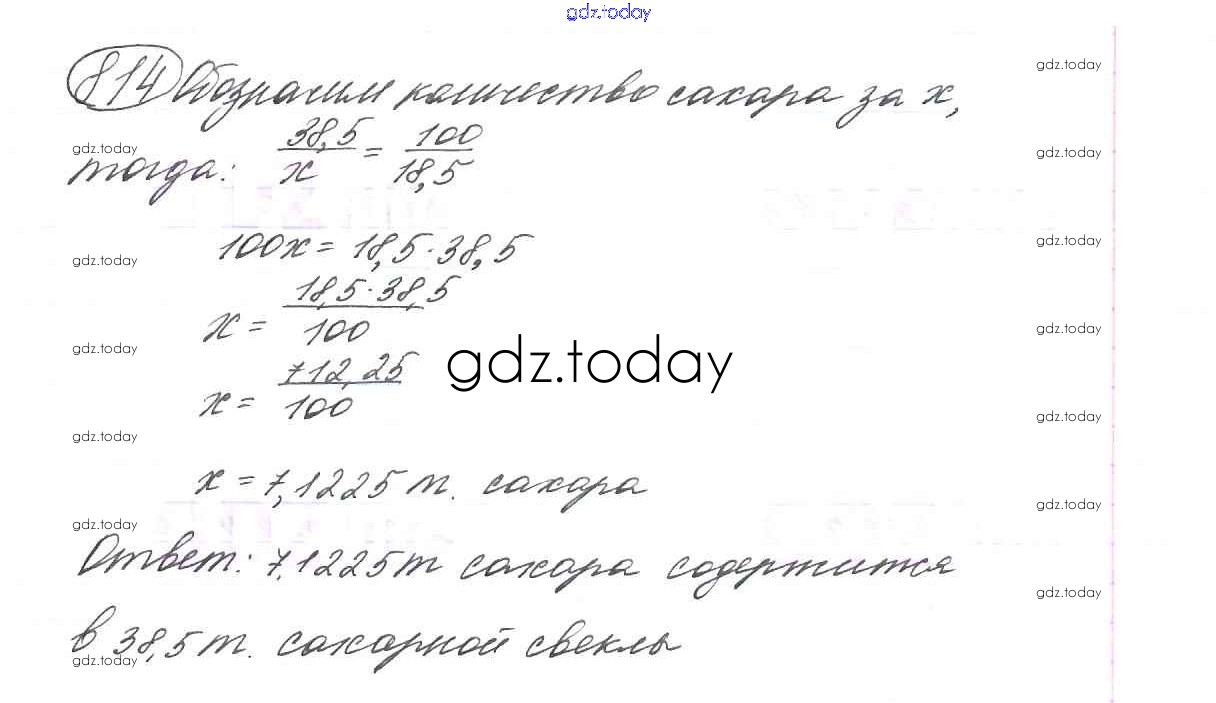 gdz.today
814 Обозначим количество сахара за x,
тогда: 38,5/x = 100/18,5
100x = 18,5·38,5
x = 18,5·38,5/100
x = 712,25/100
x = 7,1225 т. сахара
Ответ: 7,1225т сахара содержится
в 38,5т. сахарной свеклы
gdz.today
gdz.today
gdz.today
gdz.today
gdz.today
gdz.today
gdz.today
gdz.today
gdz.today
gdz.today
gdz.today
gdz.today
gdz.today
gdz.today